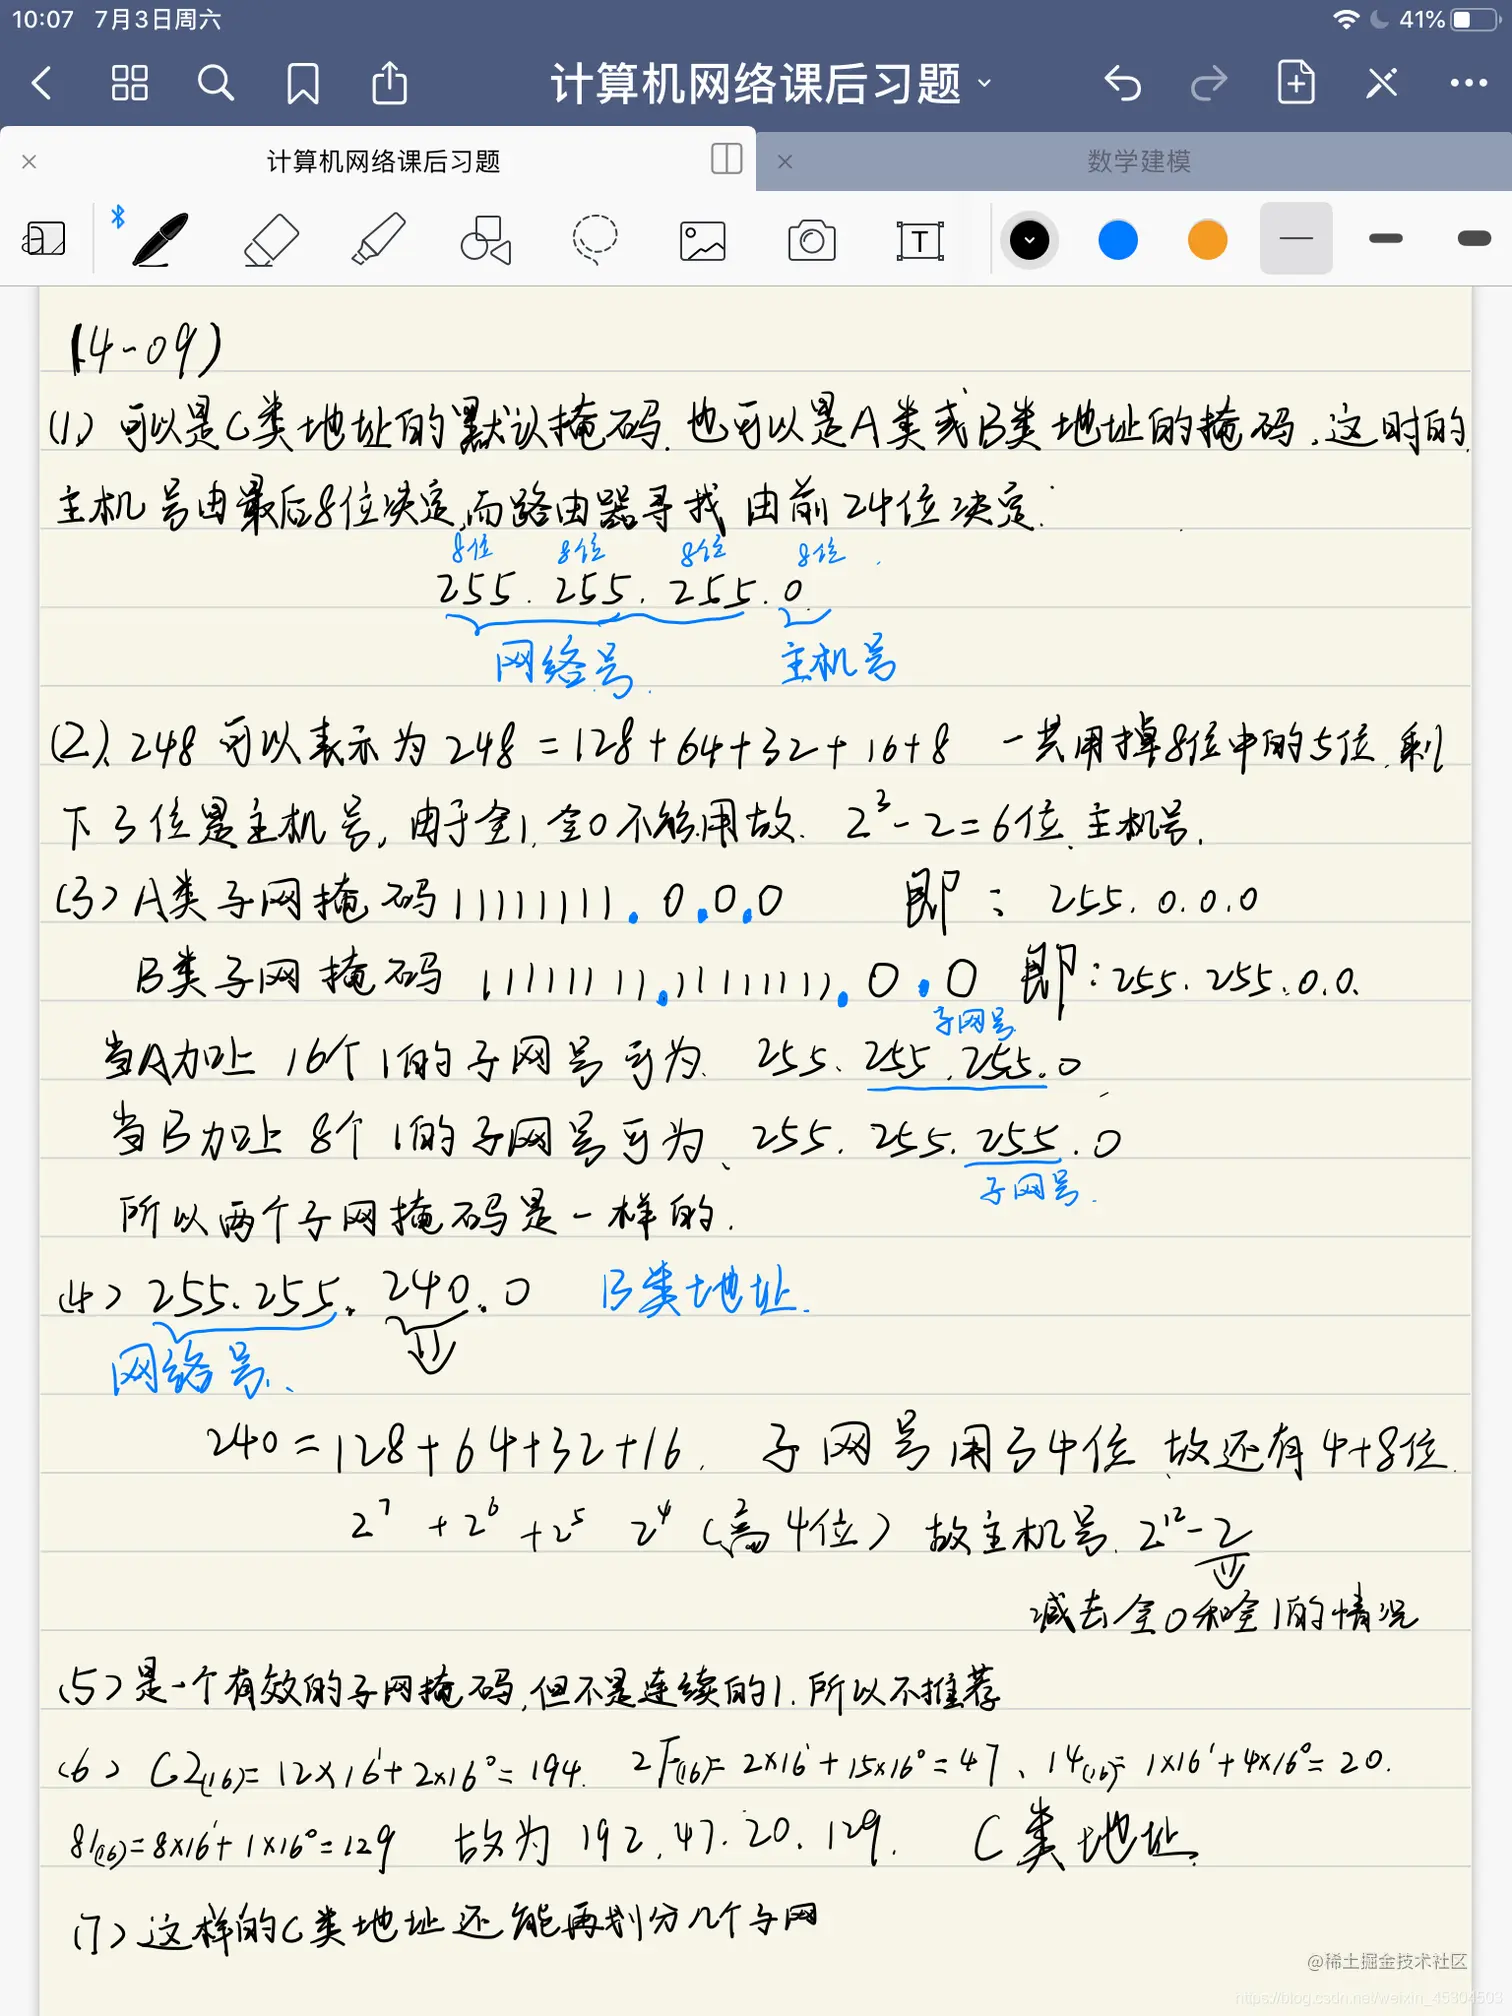 10:07 7月3日周六 41%
计算机网络课后习题
计算机网络课后习题 数学建模
T
(4-09)
(1) 可以是C类地址的默认掩码.也可以是A类或B类地址的掩码.这时的
主机号由最后8位决定,而路由器寻找 由前24位决定.
8位 8位 8位 8位
255.255.255.0
网络号. 主机号
(2)、248可以表示为248=128+64+32+16+8 一共用掉8位中的5位.剩
下3位是主机号,由于全1,全0不能用故. 2³-2=6位、主机号.
(3)A类子网掩码11111111.0.0.0 即: 255.0.0.0
B类子网掩码 11111111.11111111.0.0 即:255.255.0.0.
子网号
当A加上16个1的子网号可为. 255.255.255.0
当B加上8个1的子网号可为、255.255.255.0
子网号.
所以两个子网掩码是一样的.
(4) 255.255.240.0 B类地址.
网络号、
240=128+64+32+16. 子网号用了4位、故还有4+8位.
2⁷ +2⁶ +2⁵ 2⁴ (高4位) 故主机号.2¹²-2
减去全0和全1的情况
(5)是一个有效的子网掩码,但不是连续的1.所以不推荐
(6) C2(16)=12×16¹+2×16⁰=194. 2F(16)=2×16¹+15×16⁰=47、14(16)=1×16¹+4×16⁰=20.
81(16)=8×16¹+1×16⁰=129 故为192.47.20.129. C类地址.
(7)这样的C类地址还能再划分几个子网
@稀土掘金技术社区
https://blog.csdn.net/weixin_45304503